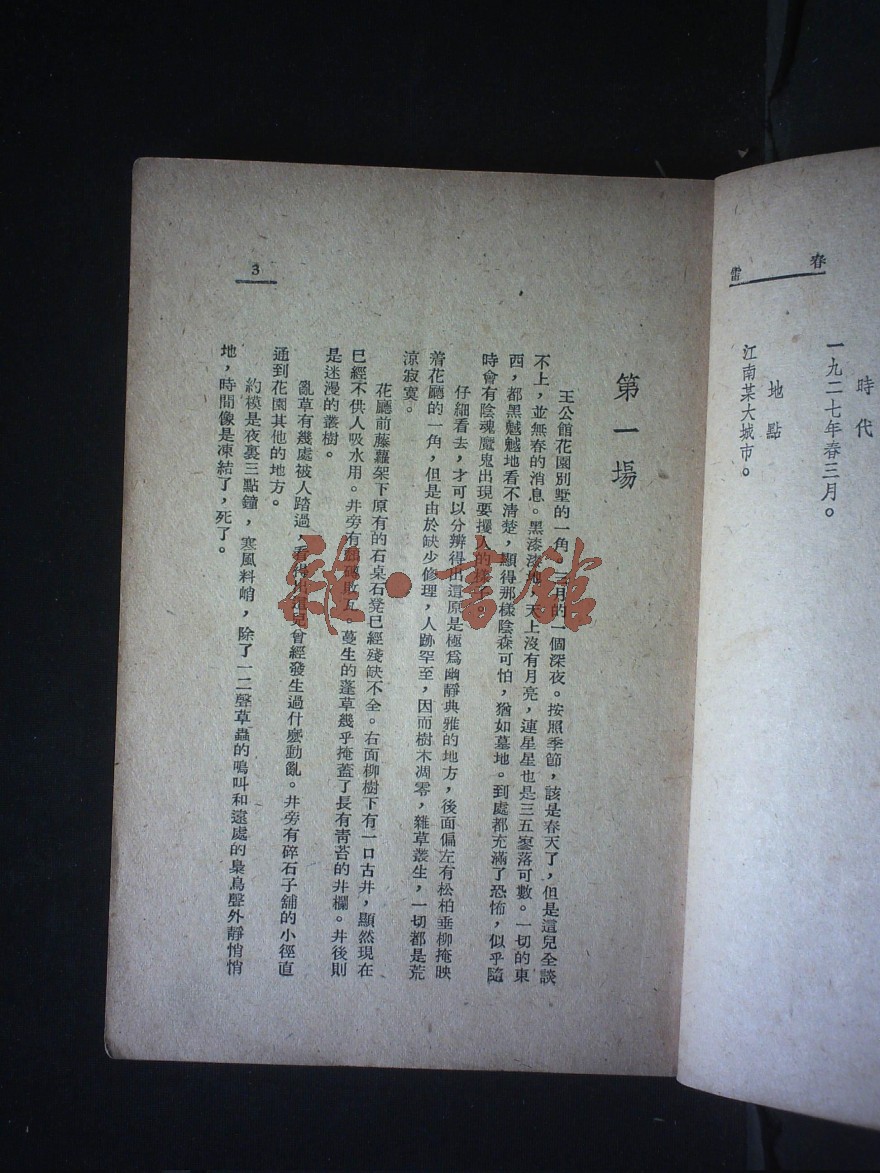 春雷
時代
一九二七年春三月。
地點
江南某大城市。
第一場
王公館花園別墅的一角。三月的一個深夜。按照季節，該是春天了，但是這兒全談
不上，並無春的消息。黑漆漆地，天上沒有月亮，連星星也是三五寥落可數。一切的東
西，都黑魆魆地看不清楚，顯得那樣陰森可怕，猶如墓地。到處都充滿了恐怖，似乎隨
時會有陰魂魔鬼出現要攫人的樣子。
仔細看去，才可以分辨得出這原是極爲幽靜典雅的地方，後面偏左有松柏垂柳掩映
着花廳的一角，但是由於缺少修理，人跡罕至，因而樹木凋零，雜草叢生，一切都是荒
涼寂寞。
花廳前藤蘿架下原有的石桌石凳已經殘缺不全。右面柳樹下有一口古井，顯然現在
已經不供人吸水用。井旁有頹磚敗瓦。蔓生的蓬草幾乎掩蓋了長有靑苔的井欄。井後則
是迷漫的叢樹。
亂草有幾處被人踏過，看得出這兒曾經發生過什麽動亂。井旁有碎石子舖的小徑直
通到花園其他的地方。
約模是夜裏三點鐘，寒風料峭，除了一二聲草蟲的鳴叫和遠處的梟鳥聲外靜悄悄
地，時間像是凍結了，死了。
3
雜·書館